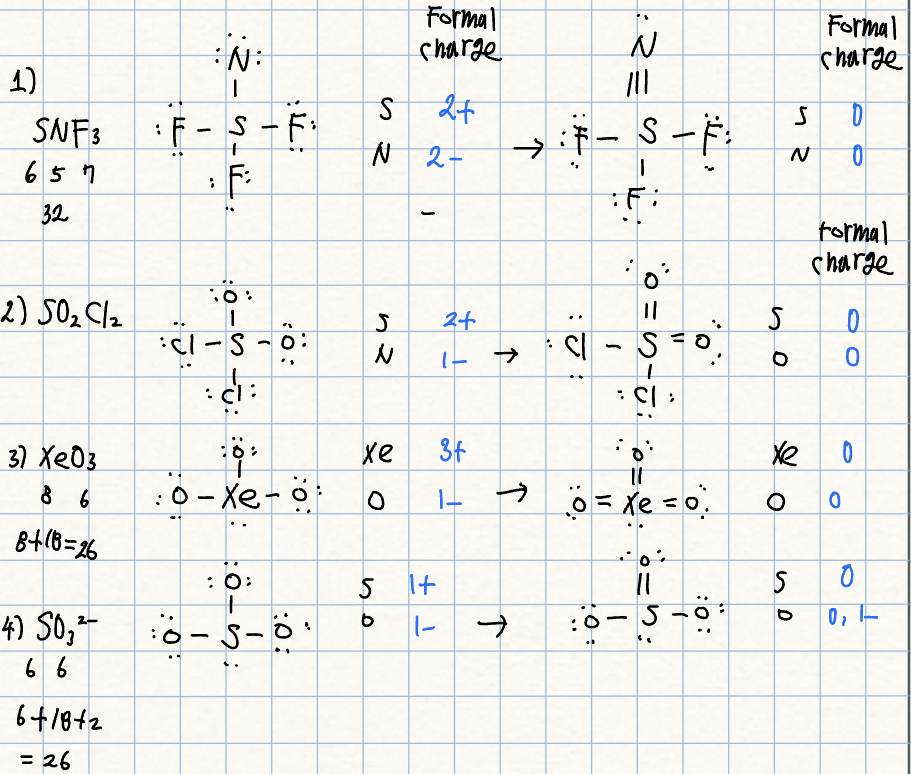 Formal charge Formal charge
1)
:N̈: N̈
| |||
SNF₃ :F̈ – S – F̈: S 2+ → :F̈ – S – F̈: S 0
6 5 7 | N 2– | N 0
32 :F̈: – :F̈:
Formal charge
:Ö: :O:
| ||
2) SO₂Cl₂ :C̈l – S – Ö: S 2+ → :Cl – S = O: S 0
| N 1– | O 0
:Cl: :Cl:
:Ö: :O:
| ||
3) XeO₃ :Ö – Xe – Ö: Xe 3+ → Ö = Xe = O: Xe 0
8 6 O 1– O 0
8+18=26
:Ö: :O:
| ||
4) SO₃²⁻ :Ö – S – Ö: S 1+ → :Ö – S – Ö: S 0
6 6 O 1– O 0, 1–
6+18+2
= 26